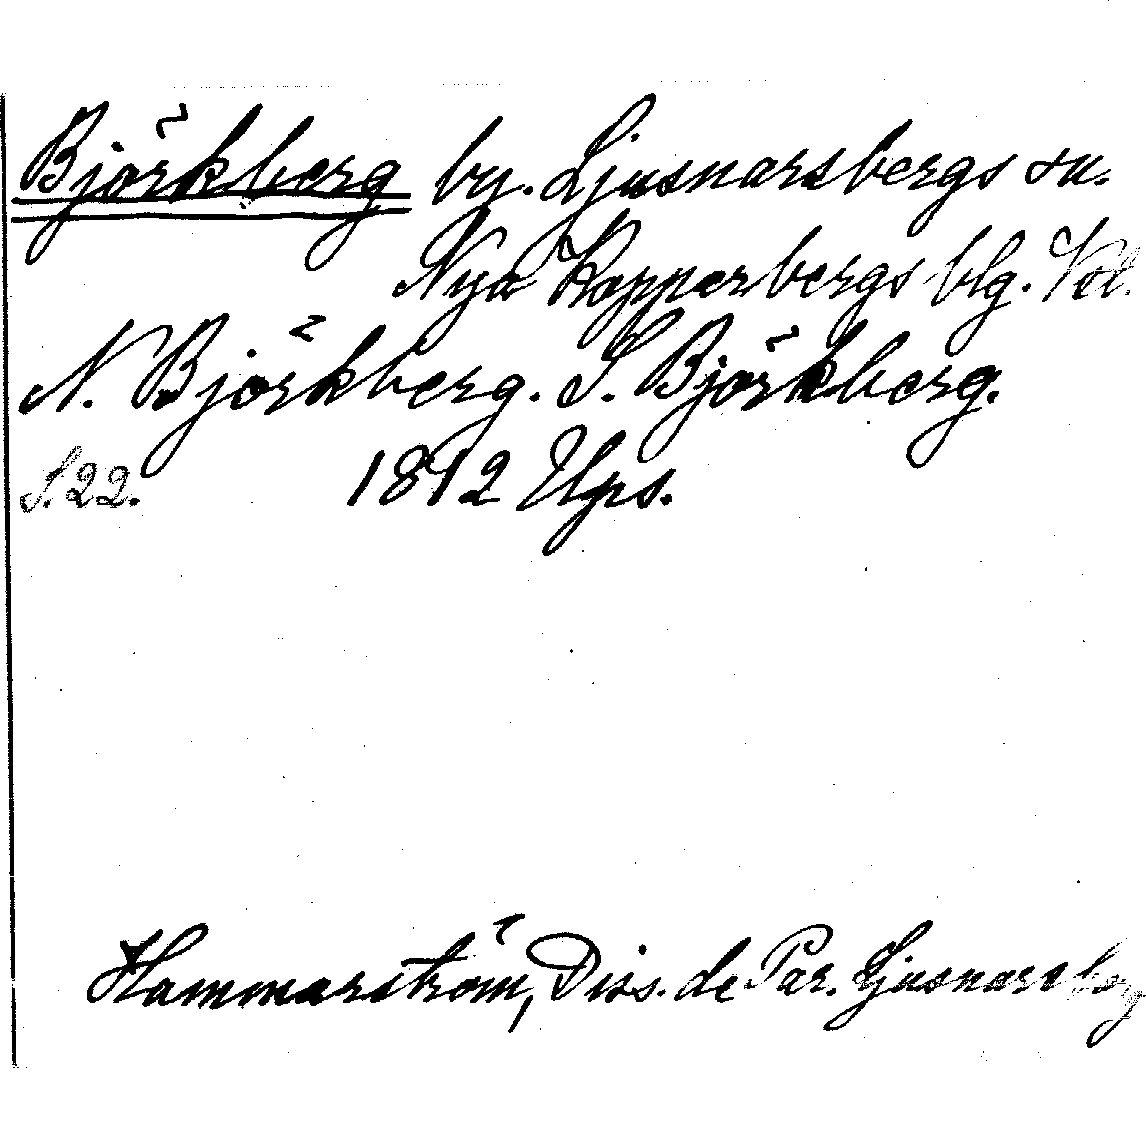 Björkberg by. Ljusnarsbergs sn.
Nya Kopparbergs blg. Vstl.
N. Björkberg. S. Björkberg.
S. 22. 1812 Ups.
Hammarström, Diss. de Par. Ljusnarsberg